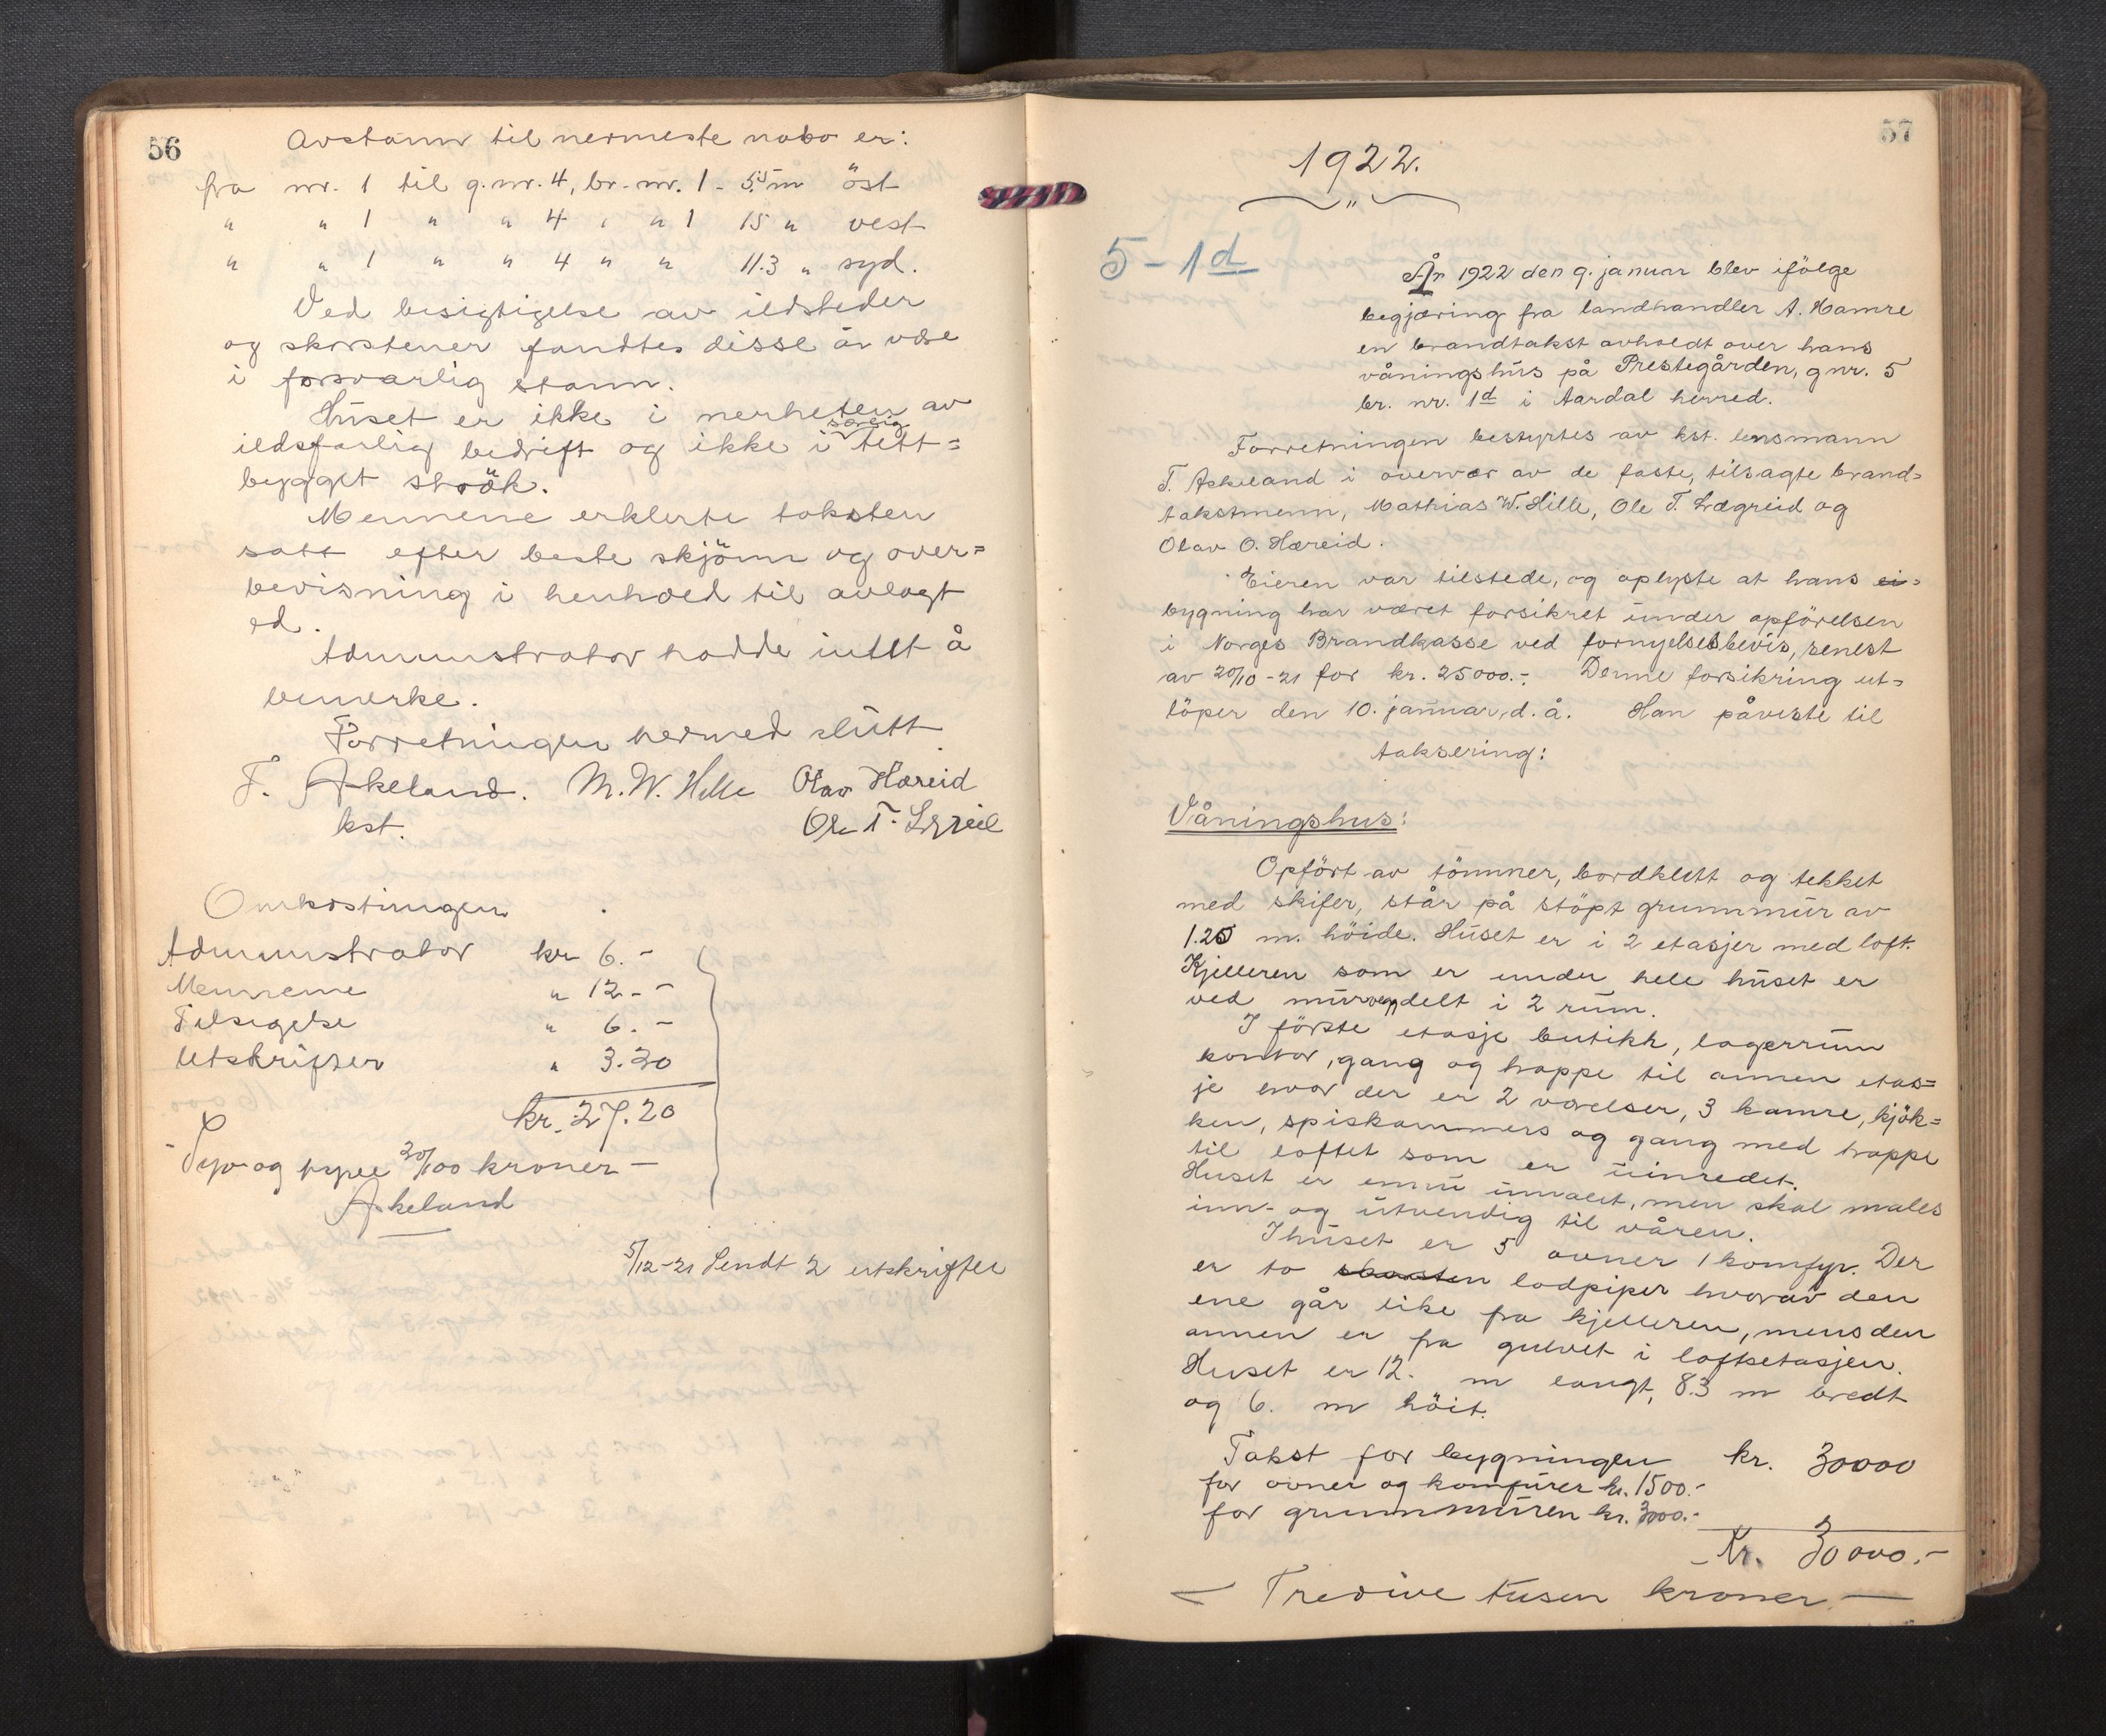 56
Avstann til nermeste nabo er:
fra nr. 1 til g.nr. 4, br. nr. 1 - 5.5 m öst
" " 1 " " 4 " " 1 15 " vest
" " 1 " " 4 " " 11.3 " syd.
Ved besigtigelse av ildsteder
og skorstener fandtes disse å være
i forsvarlig stann.
Huset er ikke i nerheten av
særlig
ildsfarlig bedrift og ikke i tett=
bygget strök.
Mennene erklerte taksten
satt efter beste skjönn og over=
bevisning i henhold til avlagt
ed.
Administrator hadde intet å
bemerke.
Forretningen hermed slutt
T. Askeland. M. W. Hille Olav Hæreid
kst. Ole T. Lægreid
Omkostningen
Administrator kr 6.-
Mennene " 12.-
Tilsigelse " 6.-
Utskrifter " 3.20
kr. 27.20
- Syv og tyve 20/100 kroner -
Askeland
5/12-21 Sendt 2 utskrifter
57
1922.
"
5 - 1d
År 1922 den 9. januar blev ifölge
begjæring fra landhandler A. Hamre
en brandtakst avholdt over hans
våningshus på Prestegården, gnr. 5
br. nr. 1d i Aardal herred.
Forretningen bestyrtes av kst. lensmann
T. Askeland i overvær av de faste, tilsagte brand=
takstmenn, Mathias W. Hille, Ole T. Lægreid og
Olav O. Hæreid.
Eieren var tilstede, og oplyste at hans ei=
bygning har været forsikret under opförelsen
i Norges Brandkasse ved fornyelsesbevis, senest
av 20/10-21 for kr. 25000.-. Denne forsikring ut=
löper den 10. januar, d. å. Han påviste til
taksering:
Våningshus:
Opfört av tömmer, bordklett og tekket
med skifer, står på stöpt grunnmur av
1.25 m. höide. Huset er i 2 etasjer med loft.
Kjelleren som er under hele huset er
ved murvegg delt i 2 rum.
I förste etasje butikk, lagerrum
kontor, gang og trappe til annen etas=
je hvor der er 2 værelser, 3 kamre, kjök=
ken, spiskammers og gang med trappe
til loftet som er uinredet.
Huset er ennu umalet, men skal males
inn- og utvendig til våren.
I huset er 5 ovner 1 komfyr. Der
er to skorsten lodpiper hvorav den
ene går like fra kjelleren, mens den
annen er fra gulvet i loftsetasjen.
Huset er 12. m langt, 8.3 m bredt
og 6. m höit.
Takst for bygningen kr. 30000
for ovner og komfurer kr. 1500.-
for grunnmuren kr. 3000.-
Kr. 30000.-
- Tredive tusen kroner -